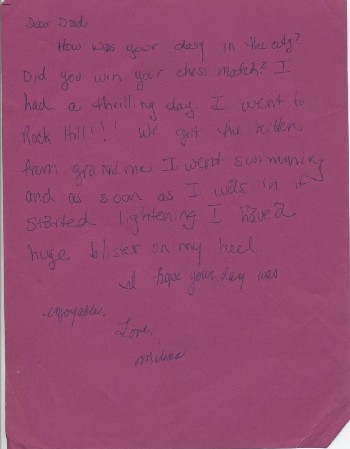 Dear Dad,
How was your day in the city?
Did you win your chess match? I
had a thrilling day. I went to
Rock Hill!!! We got the kitten
from grandma I went swimming
and as soon as I was in it
started lightening I have a
huge blister on my heel
I hope your day was
enjoyable.
Love,